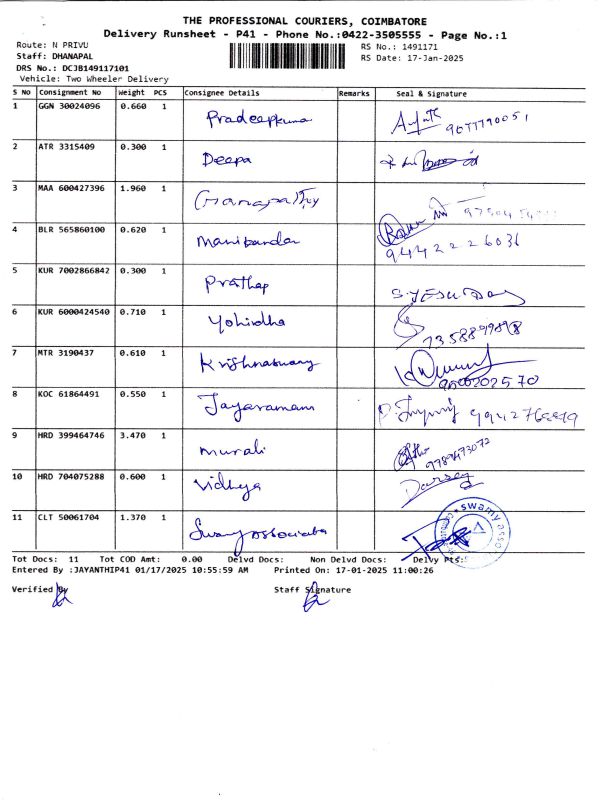 THE PROFESSIONAL COURIERS, COIMBATORE
Delivery Runsheet - P41 - Phone No.:0422-3505555 - Page No.:1
Route: N PRIVU RS No.: 1491171
Staff: DHANAPAL RS Date: 17-Jan-2025
DRS No.: DCJB149117101
Vehicle: Two Wheeler Delivery
S No Consignment No Weight PCS Consignee Details Remarks Seal & Signature
1 GGN 30024096 0.660 1 Pradeepkuma 9077790051
2 ATR 3315409 0.300 1 Deepa
3 MAA 600427396 1.960 1 Ganapathy
4 BLR 565860100 0.620 1 Manikandan 9442226036
5 KUR 7002866842 0.300 1 Prathap S.YESUDAS
6 KUR 6000424540 0.710 1 Yohindha
7 MTR 3190437 0.610 1 Krishnaswamy
8 KOC 61864491 0.550 1 Jayaramam
9 HRD 399464746 3.470 1 Murali 9789473072
10 HRD 704075288 0.600 1 Vidhya
11 CLT 50061704 1.370 1 Swamy associates
Tot Docs: 11 Tot COD Amt: 0.00 Delvd Docs: Non Delvd Docs: Delvy Pts:
Entered By :JAYANTHIP41 01/17/2025 10:55:59 AM Printed On: 17-01-2025 11:00:26
Verified By Staff Signature